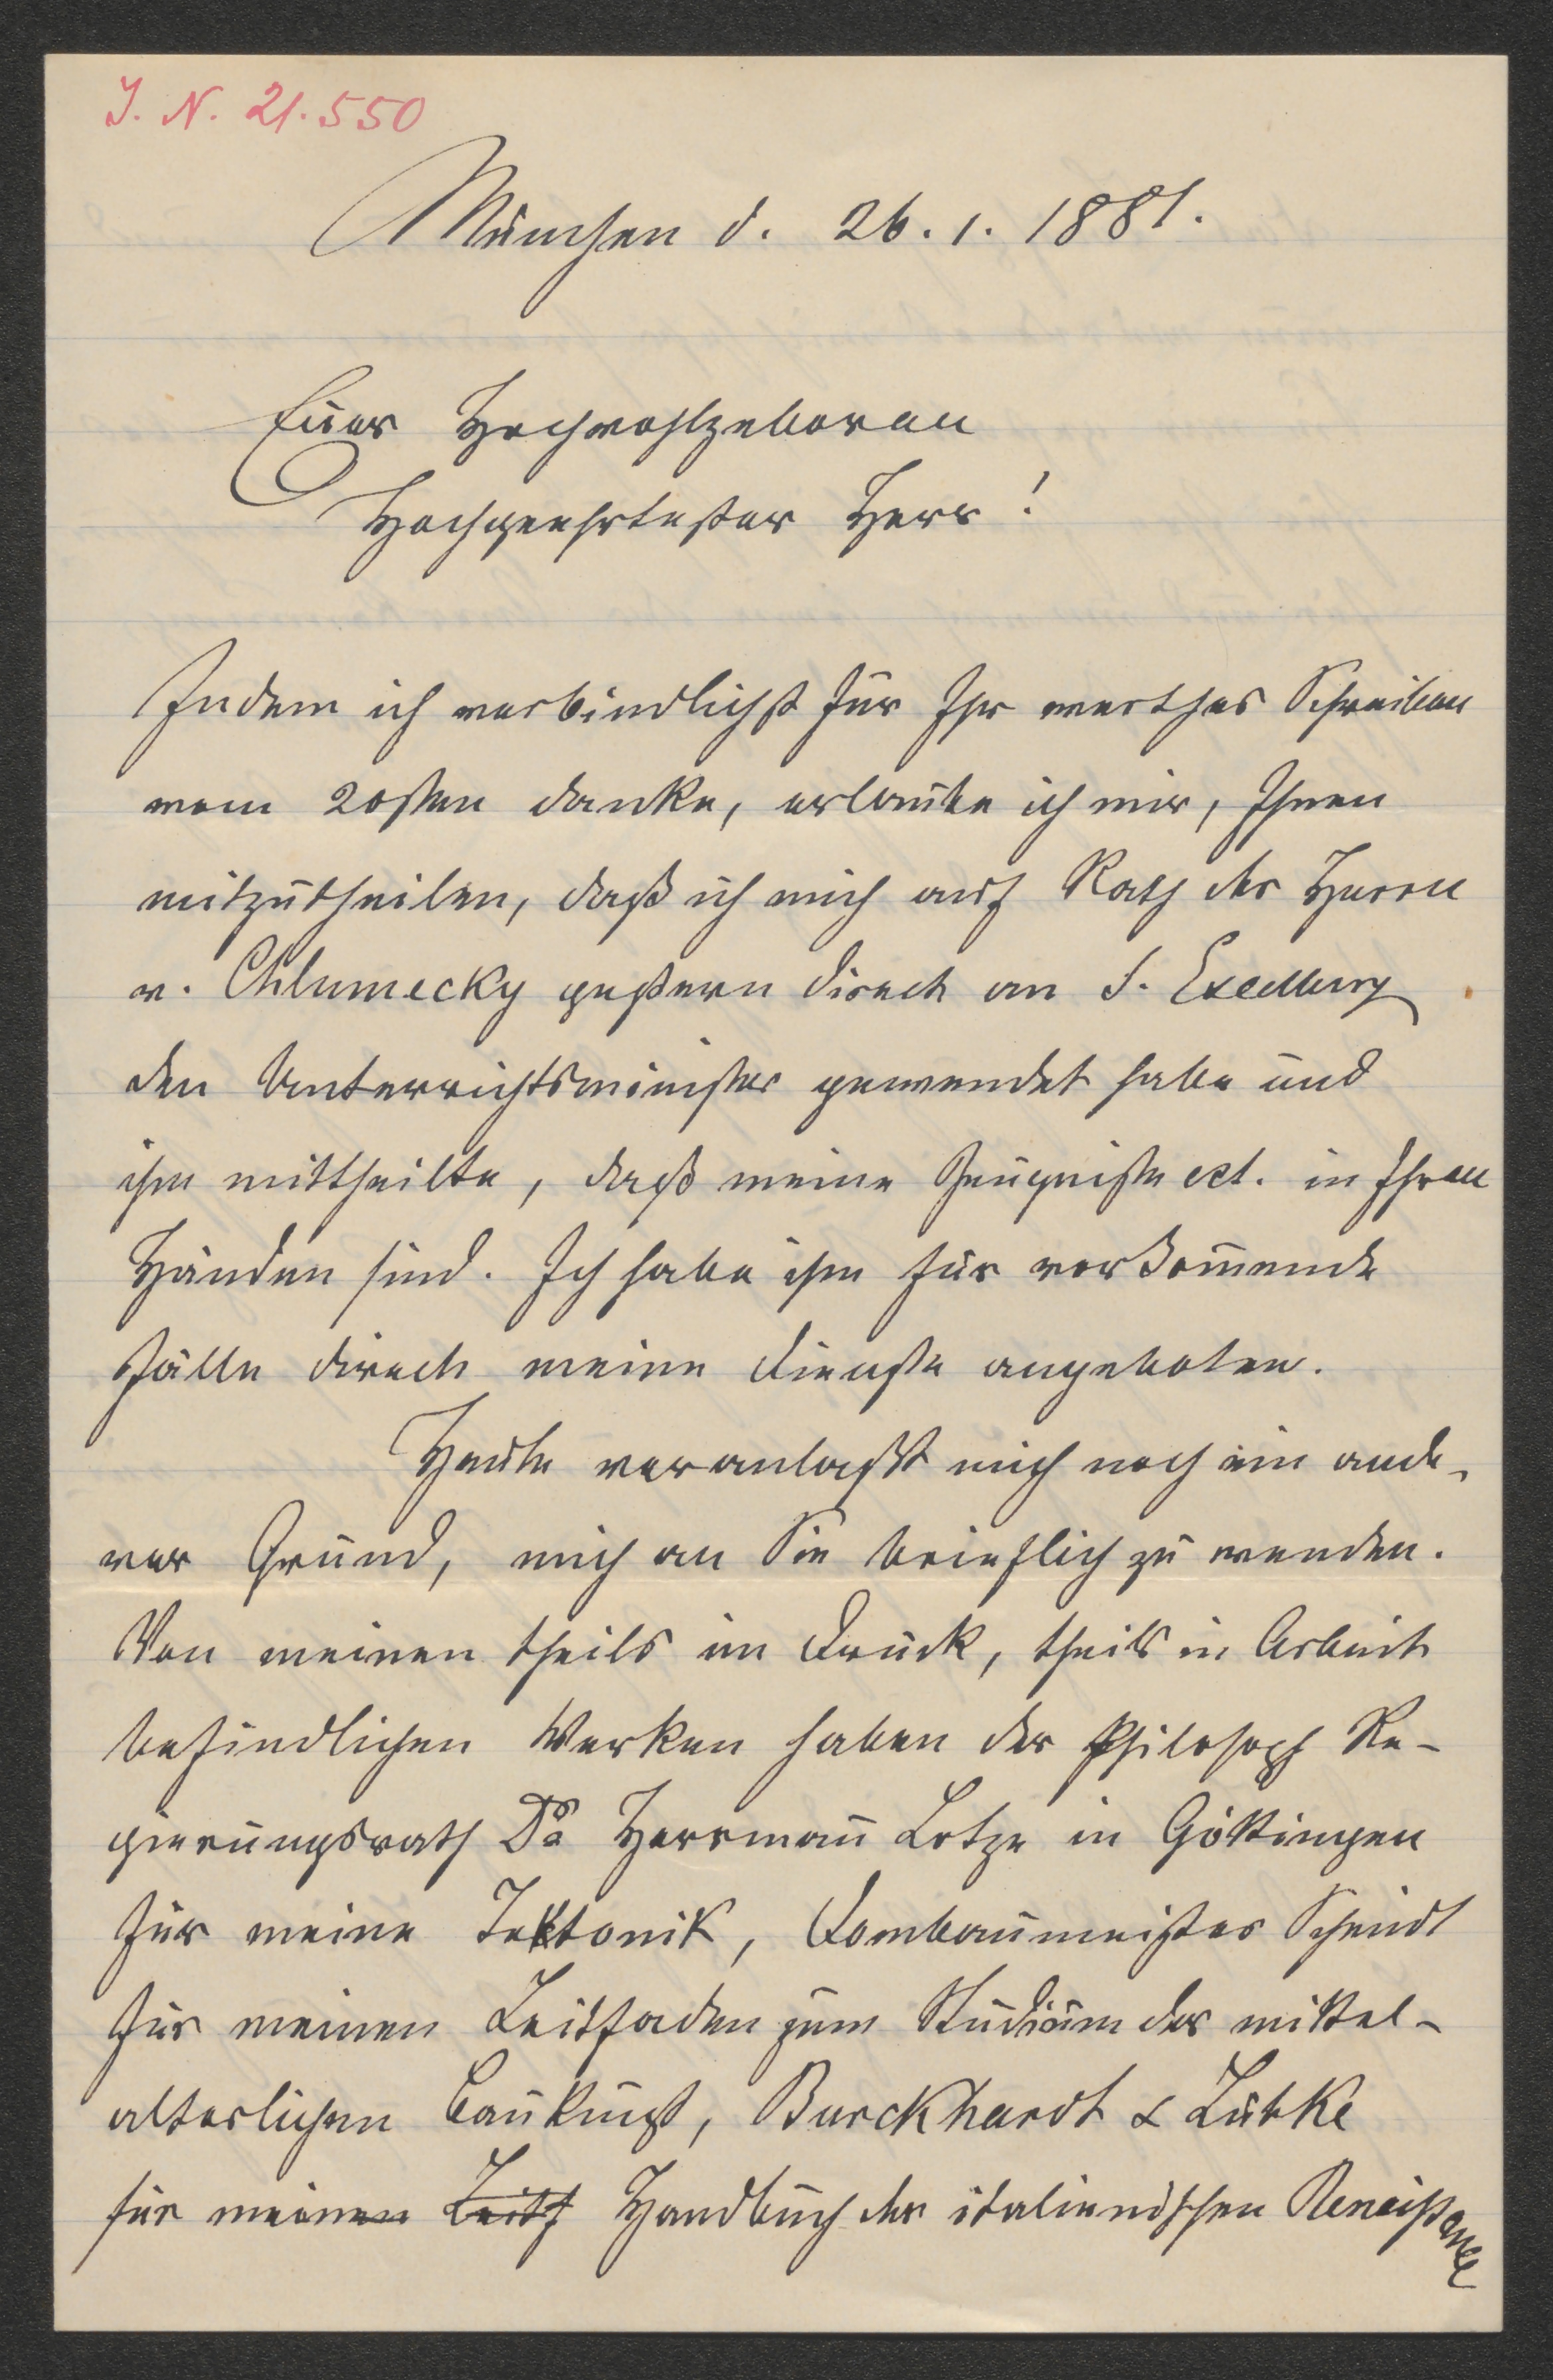 I. N. 21.550
München d. 26.1.1881.
Euer Hochwohlgeboren
Hochgeehrtester Herr!
Indem ich verbindlichst für Ihr werthes Schreiben
vom 20sten danke, erlaube ich mir, Ihnen
mitzutheilen, daß ich mich auf Rath des Herrn
v. Chlumecky gestern direct an S. Excellenz
den Unterrichtsminister gewendet habe und
ihm mittheilte, daß meine Zeugniße ect. in Ihren
Händen sind. Ich habe ihm für vorkom̄ende
Fälle direch meine Dienste angeboten.
Heute veranlaßt mich noch ein ande-
rer Grund, mich an Sie brieflich zu wenden.
Von meinen theils im Druck, theils in Arbeit
befindlichen Werken haben der Philosoph Re-
gierungsrath Dr Herrman̄ Lotze in Göttingen
für meine Tektonik, Dombaumeister Schmidt
für meinen Leitfaden zum Studium der mittel-
alterlichen Baukunst, Burckhardt & Lübke
für meinen Leitf Handbuch der italienischen Renaißance